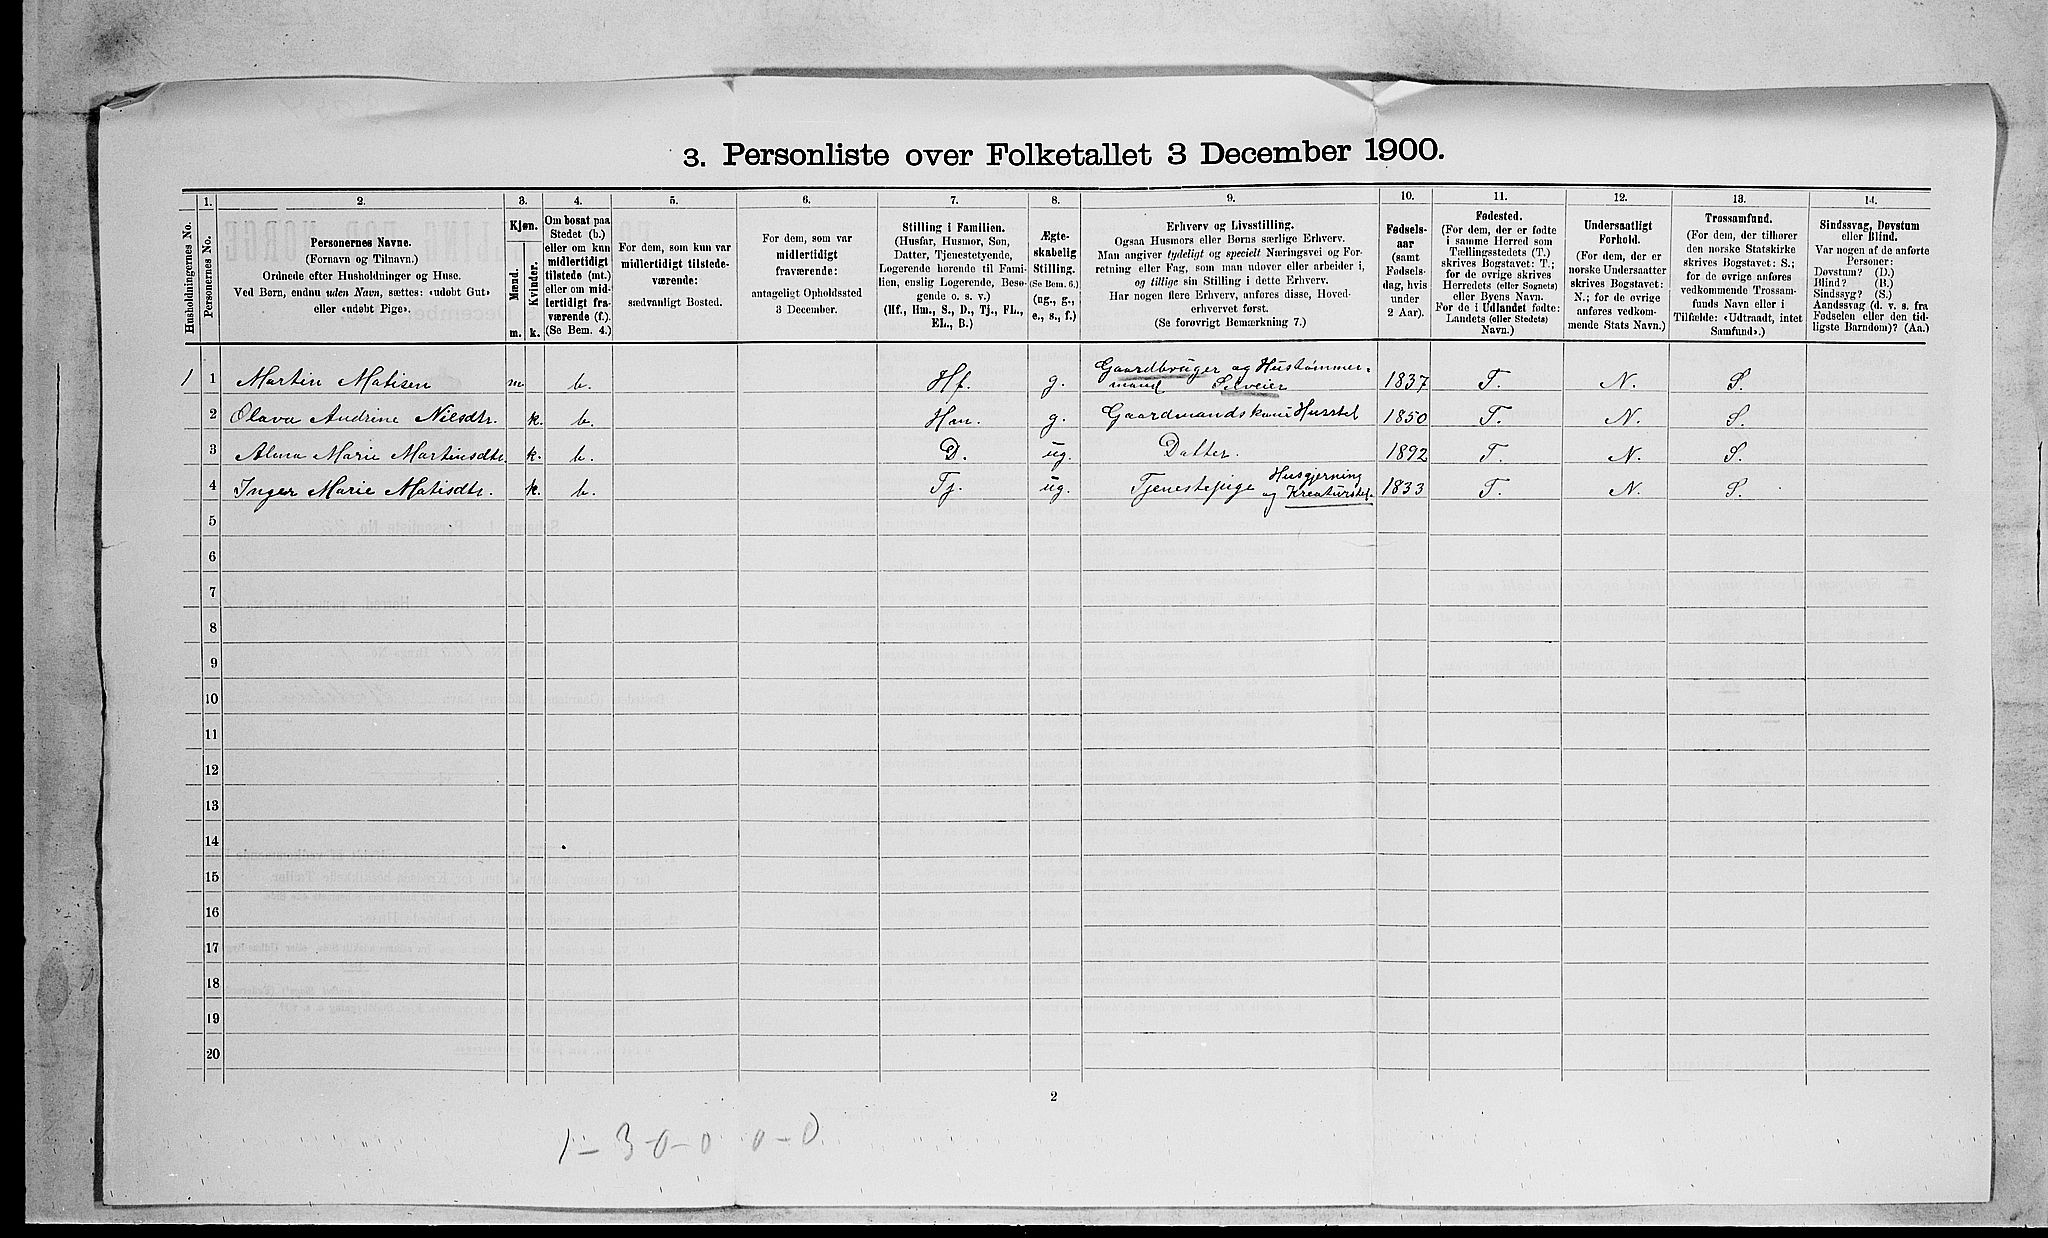 3. Personliste over Folketallet 3 December 1900.
1.
2.
3.
4.
5.
6.
7.
8.
9.
10.
11.
12.
13.
14.
Husholdningernes No.
Personernes No.
Personernes Navne.
(Fornavn og Tilnavn.)
Ordnede efter Husholdninger og Huse.
Ved Børn, endnu uden Navn, sættes: «udøbt Gut»
eller «udøbt Pige».
Kjøn.
Mænd.
Kvinder.
m.
k.
Om bosat paa
Stedet (b.)
eller om kun
midlertidigt
tilstede (mt.)
eller om mid-
lertidigt fra-
værende (f.).
(Se Bem. 4.)
For dem, som kun var
midlertidigt tilstede-
værende:
sædvanligt Bosted.
For dem, som var
midlertidigt
fraværende:
antageligt Opholdssted
3 December.
Stilling i Familien.
(Husfar, Husmor, Søn,
Datter, Tjenestetyende,
Logerende hørende til Fami-
lien, enslig Logerende, Besø-
gende o. s. v.)
(Hf., Hm., S., D., Tj., FL.,
EL., B.)
Ægte-
skabelig
Stilling.
(Se Bem. 6.)
(ug., g.,
e., s., f.)
Erhverv og Livsstilling.
Ogsaa Husmors eller Børns særlige Erhverv.
Man angiver tydeligt og specielt Næringsvei og For-
retning eller Fag, som man udøver eller arbeider i,
og tillige sin Stilling i dette Erhverv.
Har nogen flere Erhverv, anføres disse, Hoved-
erhvervet først.
(Se forøvrigt Bemærkning 7.)
Fødsels-
aar
(samt
Fødsels-
dag, hvis
under
2 Aar).
Fødested.
(For dem, der er fødte
i samme Herred som
Tællingsstedets (T.)
skrives Bogstavet: T.;
for de øvrige skrives
Herredets (eller Sognets)
eller Byens Navn.
For de i Udlandet fødte:
Landets (eller Stedets)
Navn.)
Undersaatligt
Forhold.
(For dem, der er
norske Undersaatter
skrives Bogstavet:
N.; for de øvrige
anføres vedkom-
mende Stats Navn.)
Trossamfund.
(For dem, der tilhører
den norske Statskirke
skrives Bogstavet: S.;
for de øvrige anføres
vedkommende Trossam-
funds Navn eller i
Tilfælde: «Udtraadt, intet
Samfund».)
Sindssvag, Døvstum
eller Blind.
Var nogen af de anførte
Personer:
Døvstum? (D.)
Blind? (B.)
Sindssyg? (S.)
Aandssvag (d. v. s. fra
Fødselen eller den tid-
ligste Barndom)? (Aa.)
1 1 Martin Matisen m. b. Hf. g. Gaardbruger og Hustømmer-
mand Selveier 1837 T. N. S.
2 Olava Andrine Nilsdtr. k. b. Hm. g. Gaardmandskone Husstel 1850 T. N. S.
3 Alma Marie Martinsdtr. k. b. D. ug. Datter. 1892 T. N. S.
4 Inger Marie Matisdtr. k. b. Tj. ug. Tjenestepige Husgjerning
og Kreaturstel. 1833 T. N. S.
5
6
7
8
9
10
11
12
13
14
15
16
17
18
19
20
2
1 - 3 0 - 0 0 - 0